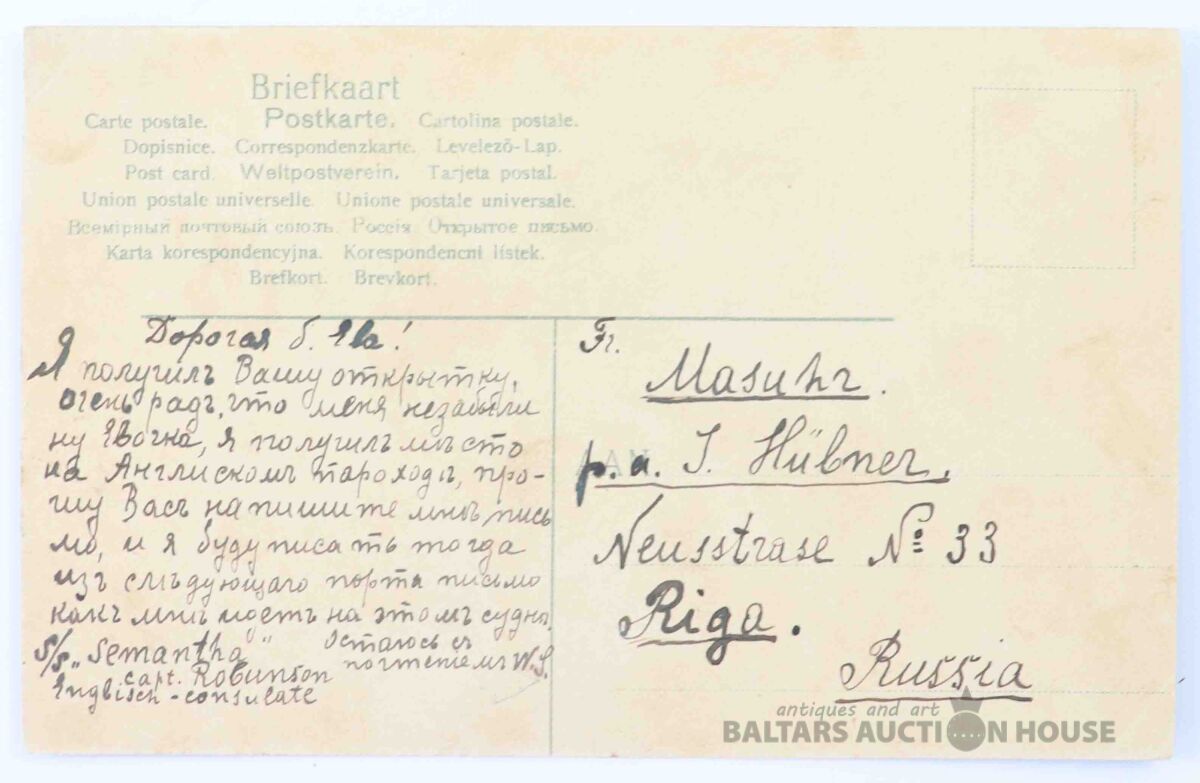 Briefkaart
Carte postale. Postkarte. Cartolina postale.
Dopisnice. Correspondenzkarte. Levelező-Lap.
Post card. Weltpostverein. Tarjeta postal.
Union postale universelle. Unione postale universale.
Всемірный почтовый союзъ. Россія Открытое письмо.
Karta korespondencyjna. Korespondencni lístek.
Brefkort. Brevkort.
Дорогая б. Ева!
Я получилъ Вашу открытку,
очень радъ, что меня незабыли
ну Евочка, я получилъ мѣсто
на Англискомъ пароходѣ, про-
шу Васъ напишите мнѣ пись
мо, и я буду писать тогда
изъ слѣдующаго порта письмо
какъ мнѣ идетъ на этомъ суднѣ
S/S „Semantha" Остаюсь съ
capt. Robunson почтеніемъ W. S.
Englisch-consulate
Fr.
Masuhr.
p. a. J. Hübner.
Neusstrase № 33
Riga.
Russia
antiques and art
BALTARS AUCTION HOUSE